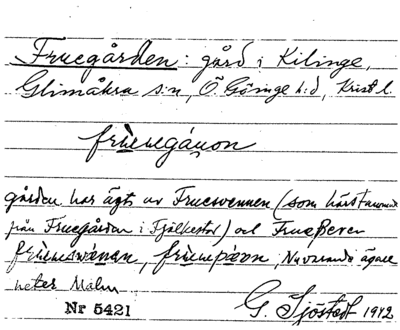 Fruegården : gård i Kilinge,
Glimåkra s:n, Ö Göinge h:d, Krist l.
frùenegáṇon
gården har ägts av Truesvennen (som härstammade
från Fruegården i Fjälkestad) och
Nuvarande ägare
heter Malm
Nr 5421 G. Sjöstedt 1942